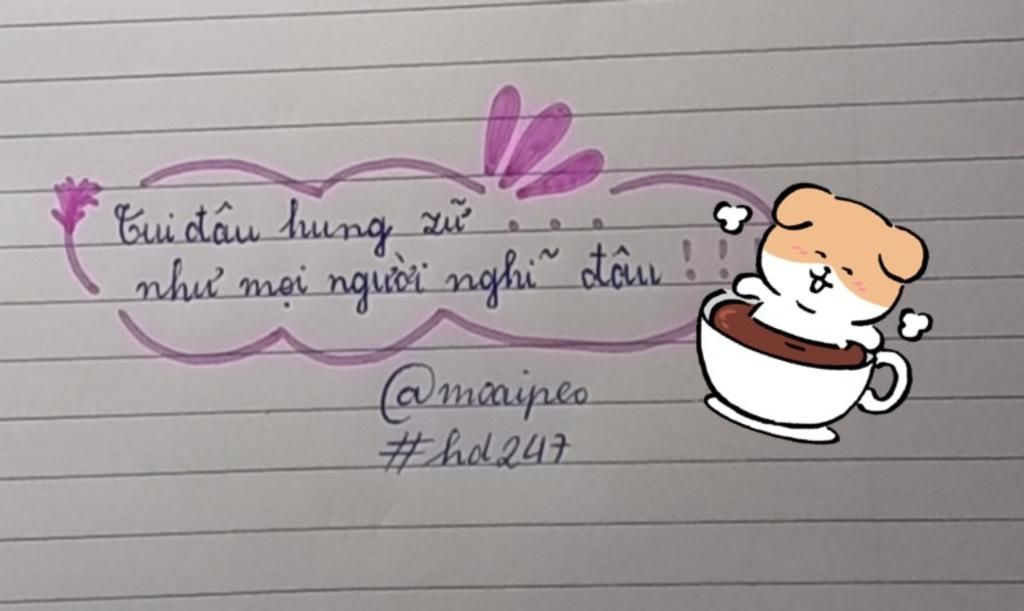 Tui đâu hung zữ . . .
như mọi người nghĩ đâu ! ! !
@moaipeo
#hd247